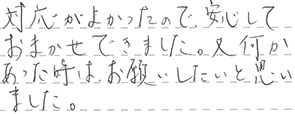 対応がよかったので、安心して
おまかせできました。又何か
あった時は、お願いしたいと思い
ました。